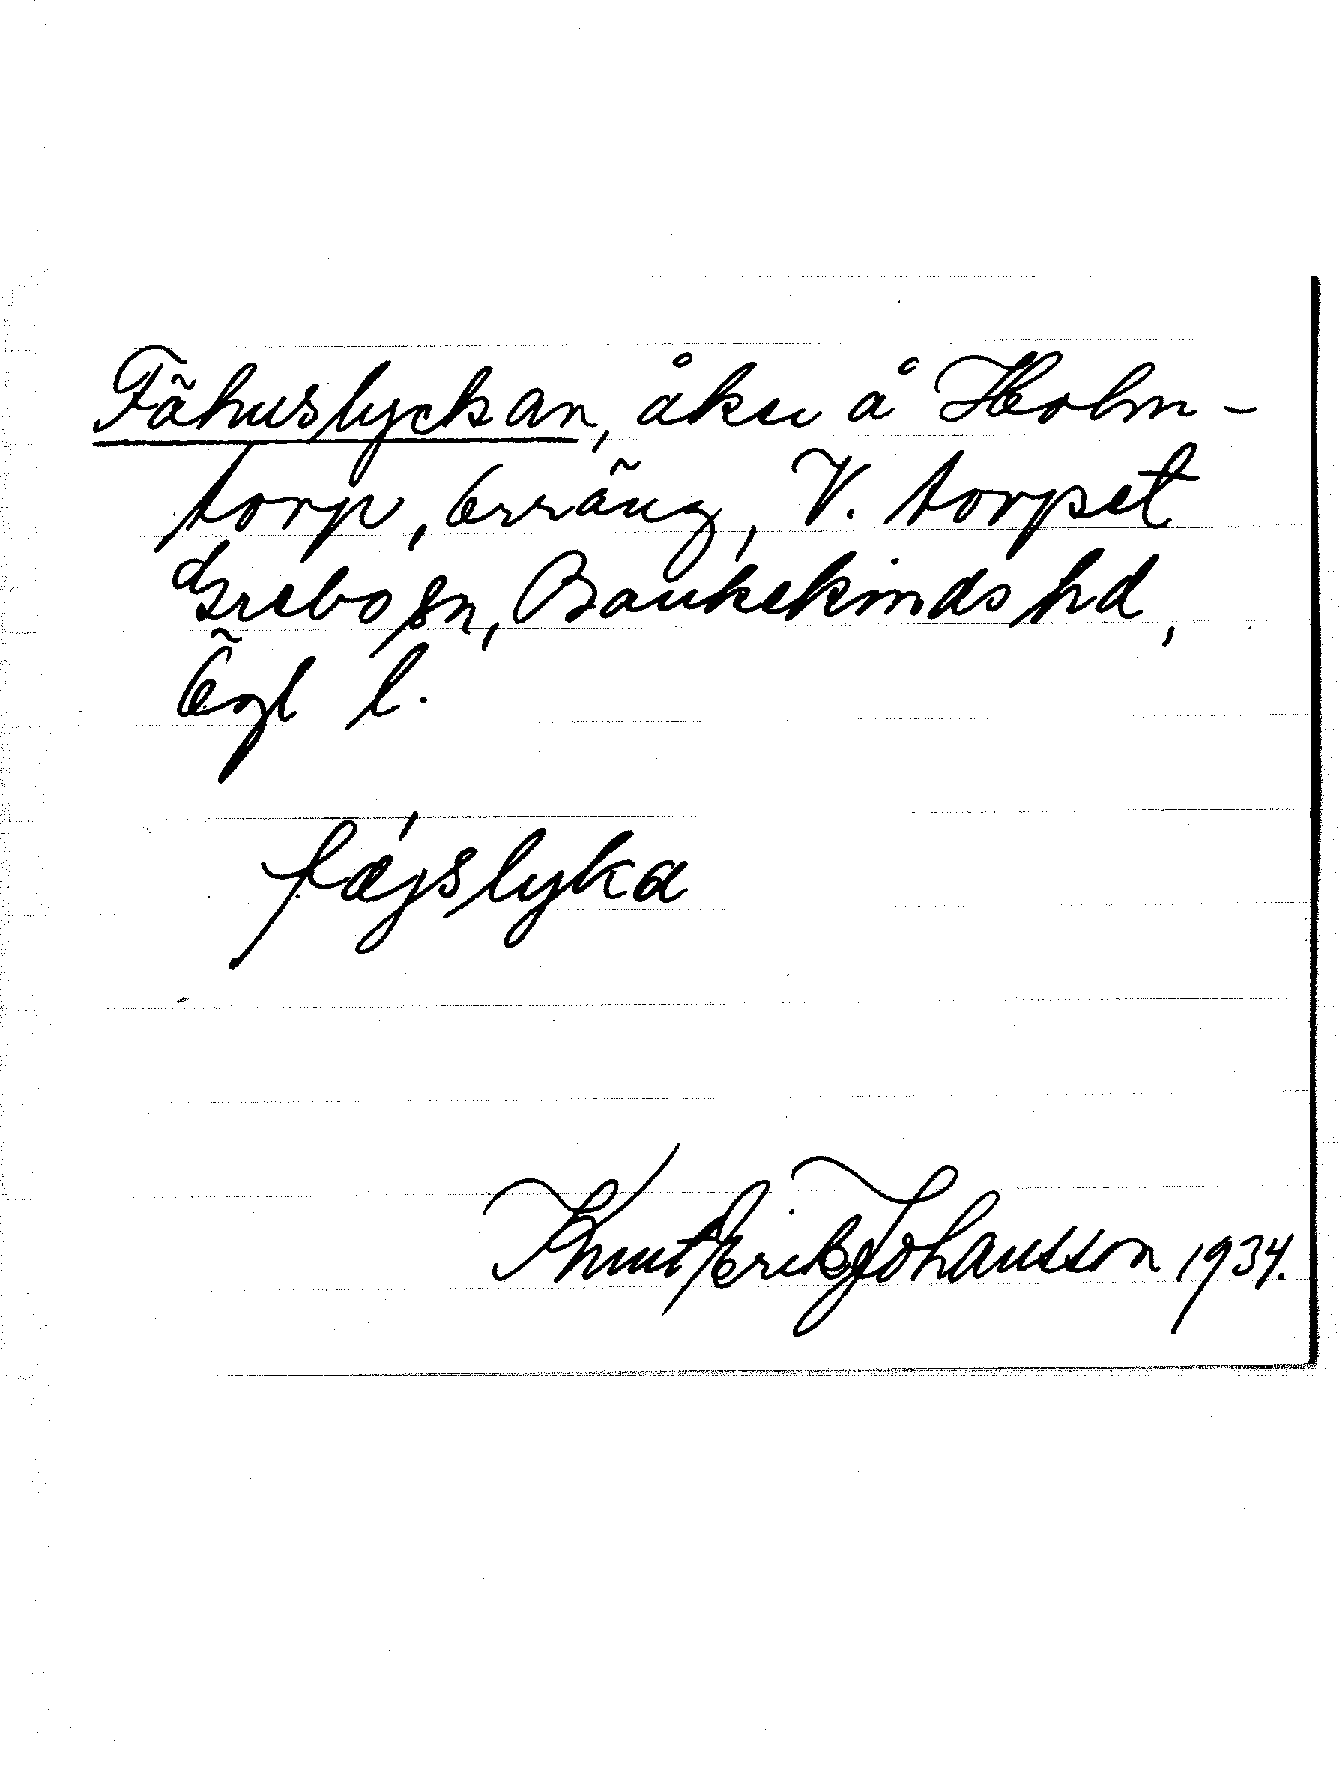 Fähuslyckan, åker å Holm-
torp, Erräng, V. torpet
Grebo sn, Bankekinds hd,
Ögl l.
fǽjslyka
Knut Erik Johansson 1934.